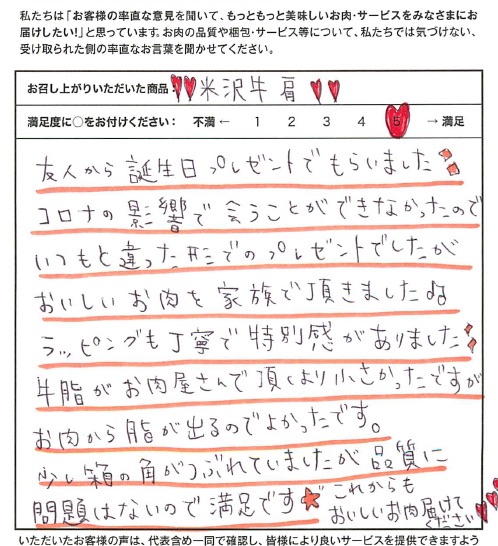 私たちは「お客様の率直な意見を聞いて、もっともっと美味しいお肉・サービスをみなさまにお
届けしたい!」と思っています。お肉の品質や梱包・サービス等について、私たちでは気づけない、
受け取られた側の率直なお言葉を聞かせてください。
お召し上がりいただいた商品: 米沢牛 肩
満足度に○をお付けください: 不満 ← 1 2 3 4 5 → 満足
友人から 誕生日 プレゼントで もらいました
コロナの 影響で 会うことが できなかったので
いつもと違った 形でのプレゼントでしたが
おいしい お肉を 家族で 頂きました
ラッピングも 丁寧で 特別感がありました
牛脂が お肉屋さんで 頂くより 小さかったですが
お肉から 脂が 出るのでよかったです。
少し箱の 角がつぶれていましたが 品質に
問題はないので 満足です
これからも
おいしいお肉届けて
ください
いただいたお客様の声は、代表含め一同で確認し、皆様により良いサービスを提供できますよう